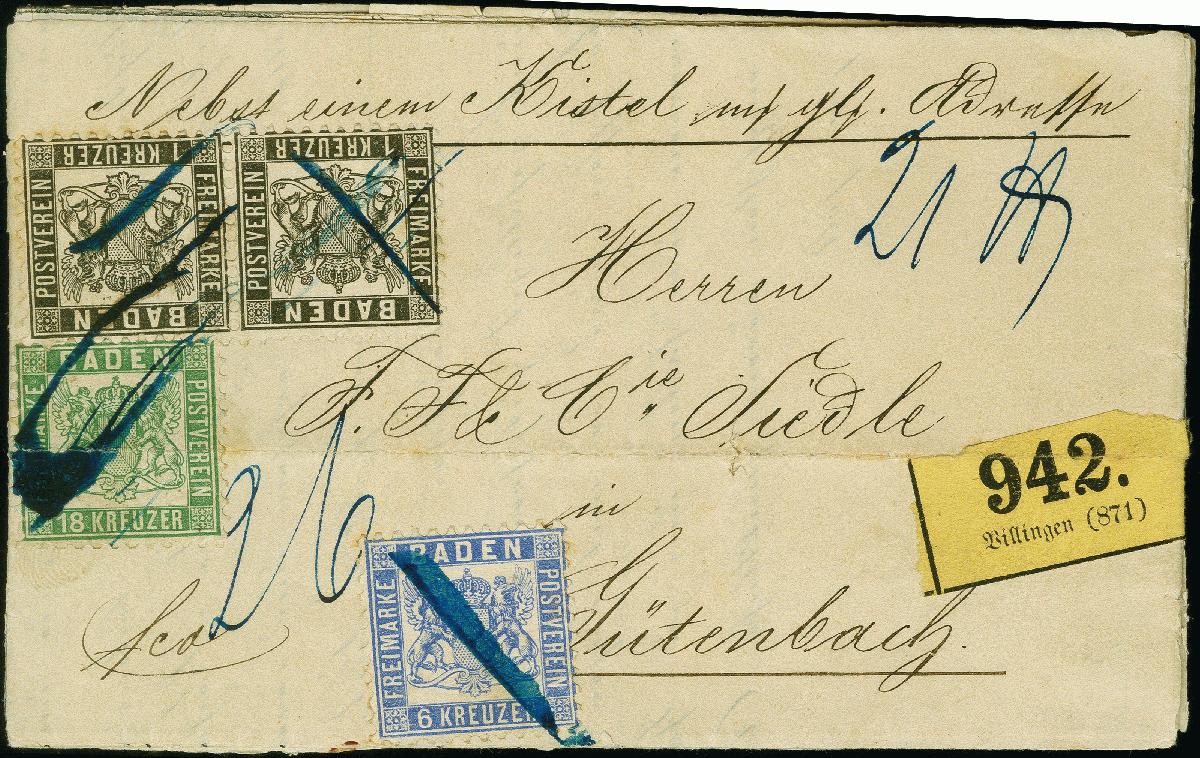 Nebst einem Kistel mit glf. Adresse
1 KREUZER
POSTVEREIN
FREIMARKE
BADEN
1 KREUZER
POSTVEREIN
FREIMARKE
BADEN
21
Herren
F. F. & Cie Siedle
BADEN
POSTVEREIN
18 KREUZER
942.
Villingen (871)
26
in
BADEN
FREIMARKE
POSTVEREIN
6 KREUZER
fco
Gütenbach.